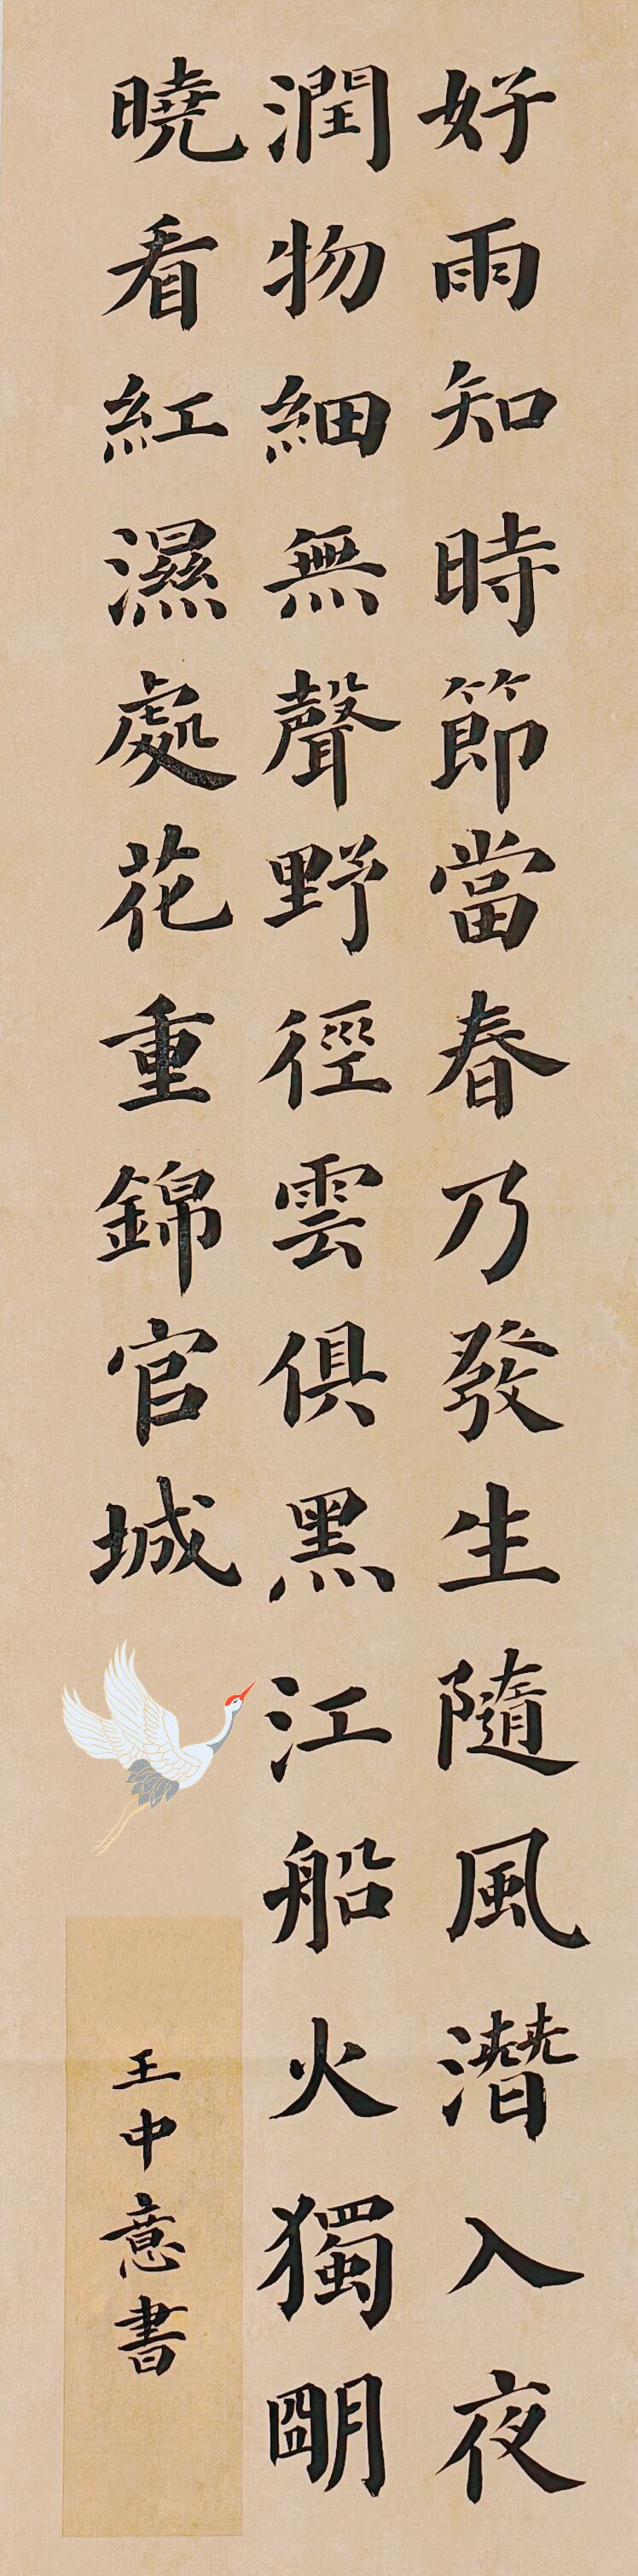 好雨知時節當春乃發生隨風潛入夜
潤物細無聲野徑雲俱黑江船火獨朙
曉看紅濕處花重錦官城
王中意書